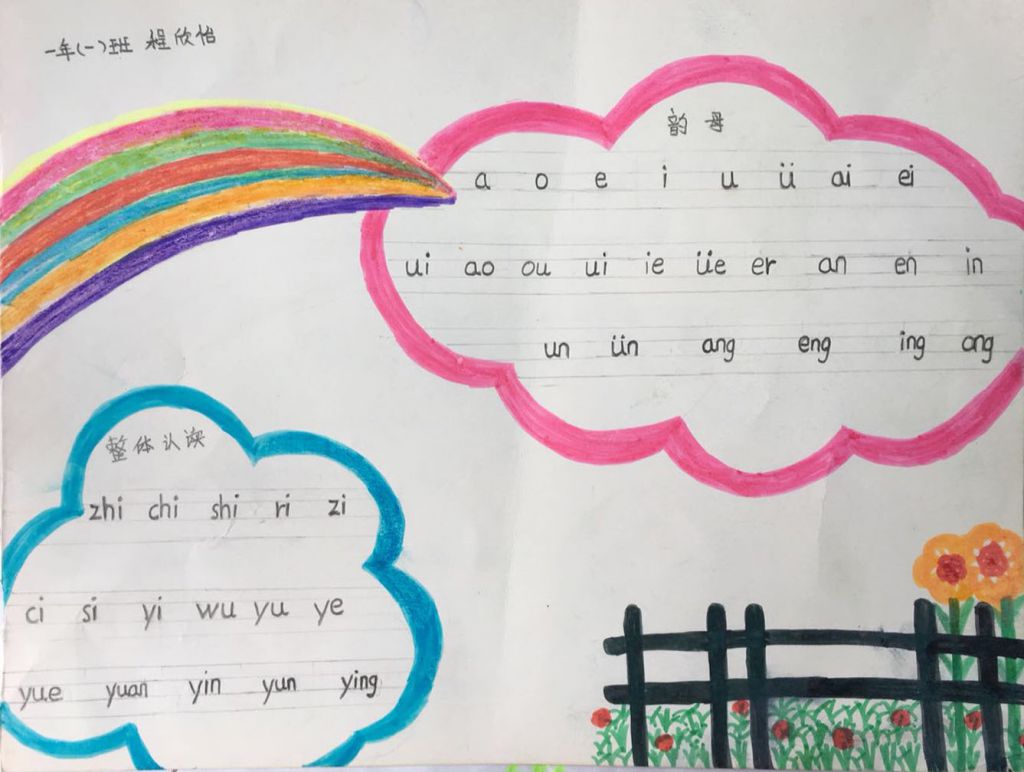 一年(一)班 程欣怡
韵母
a o e i u ü ai ei
ui ao ou ui ie üe er an en in
un ün ang eng ing ong
整体认读
zhi chi shi ri zi
ci si yi wu yu ye
yue yuan yin yun ying